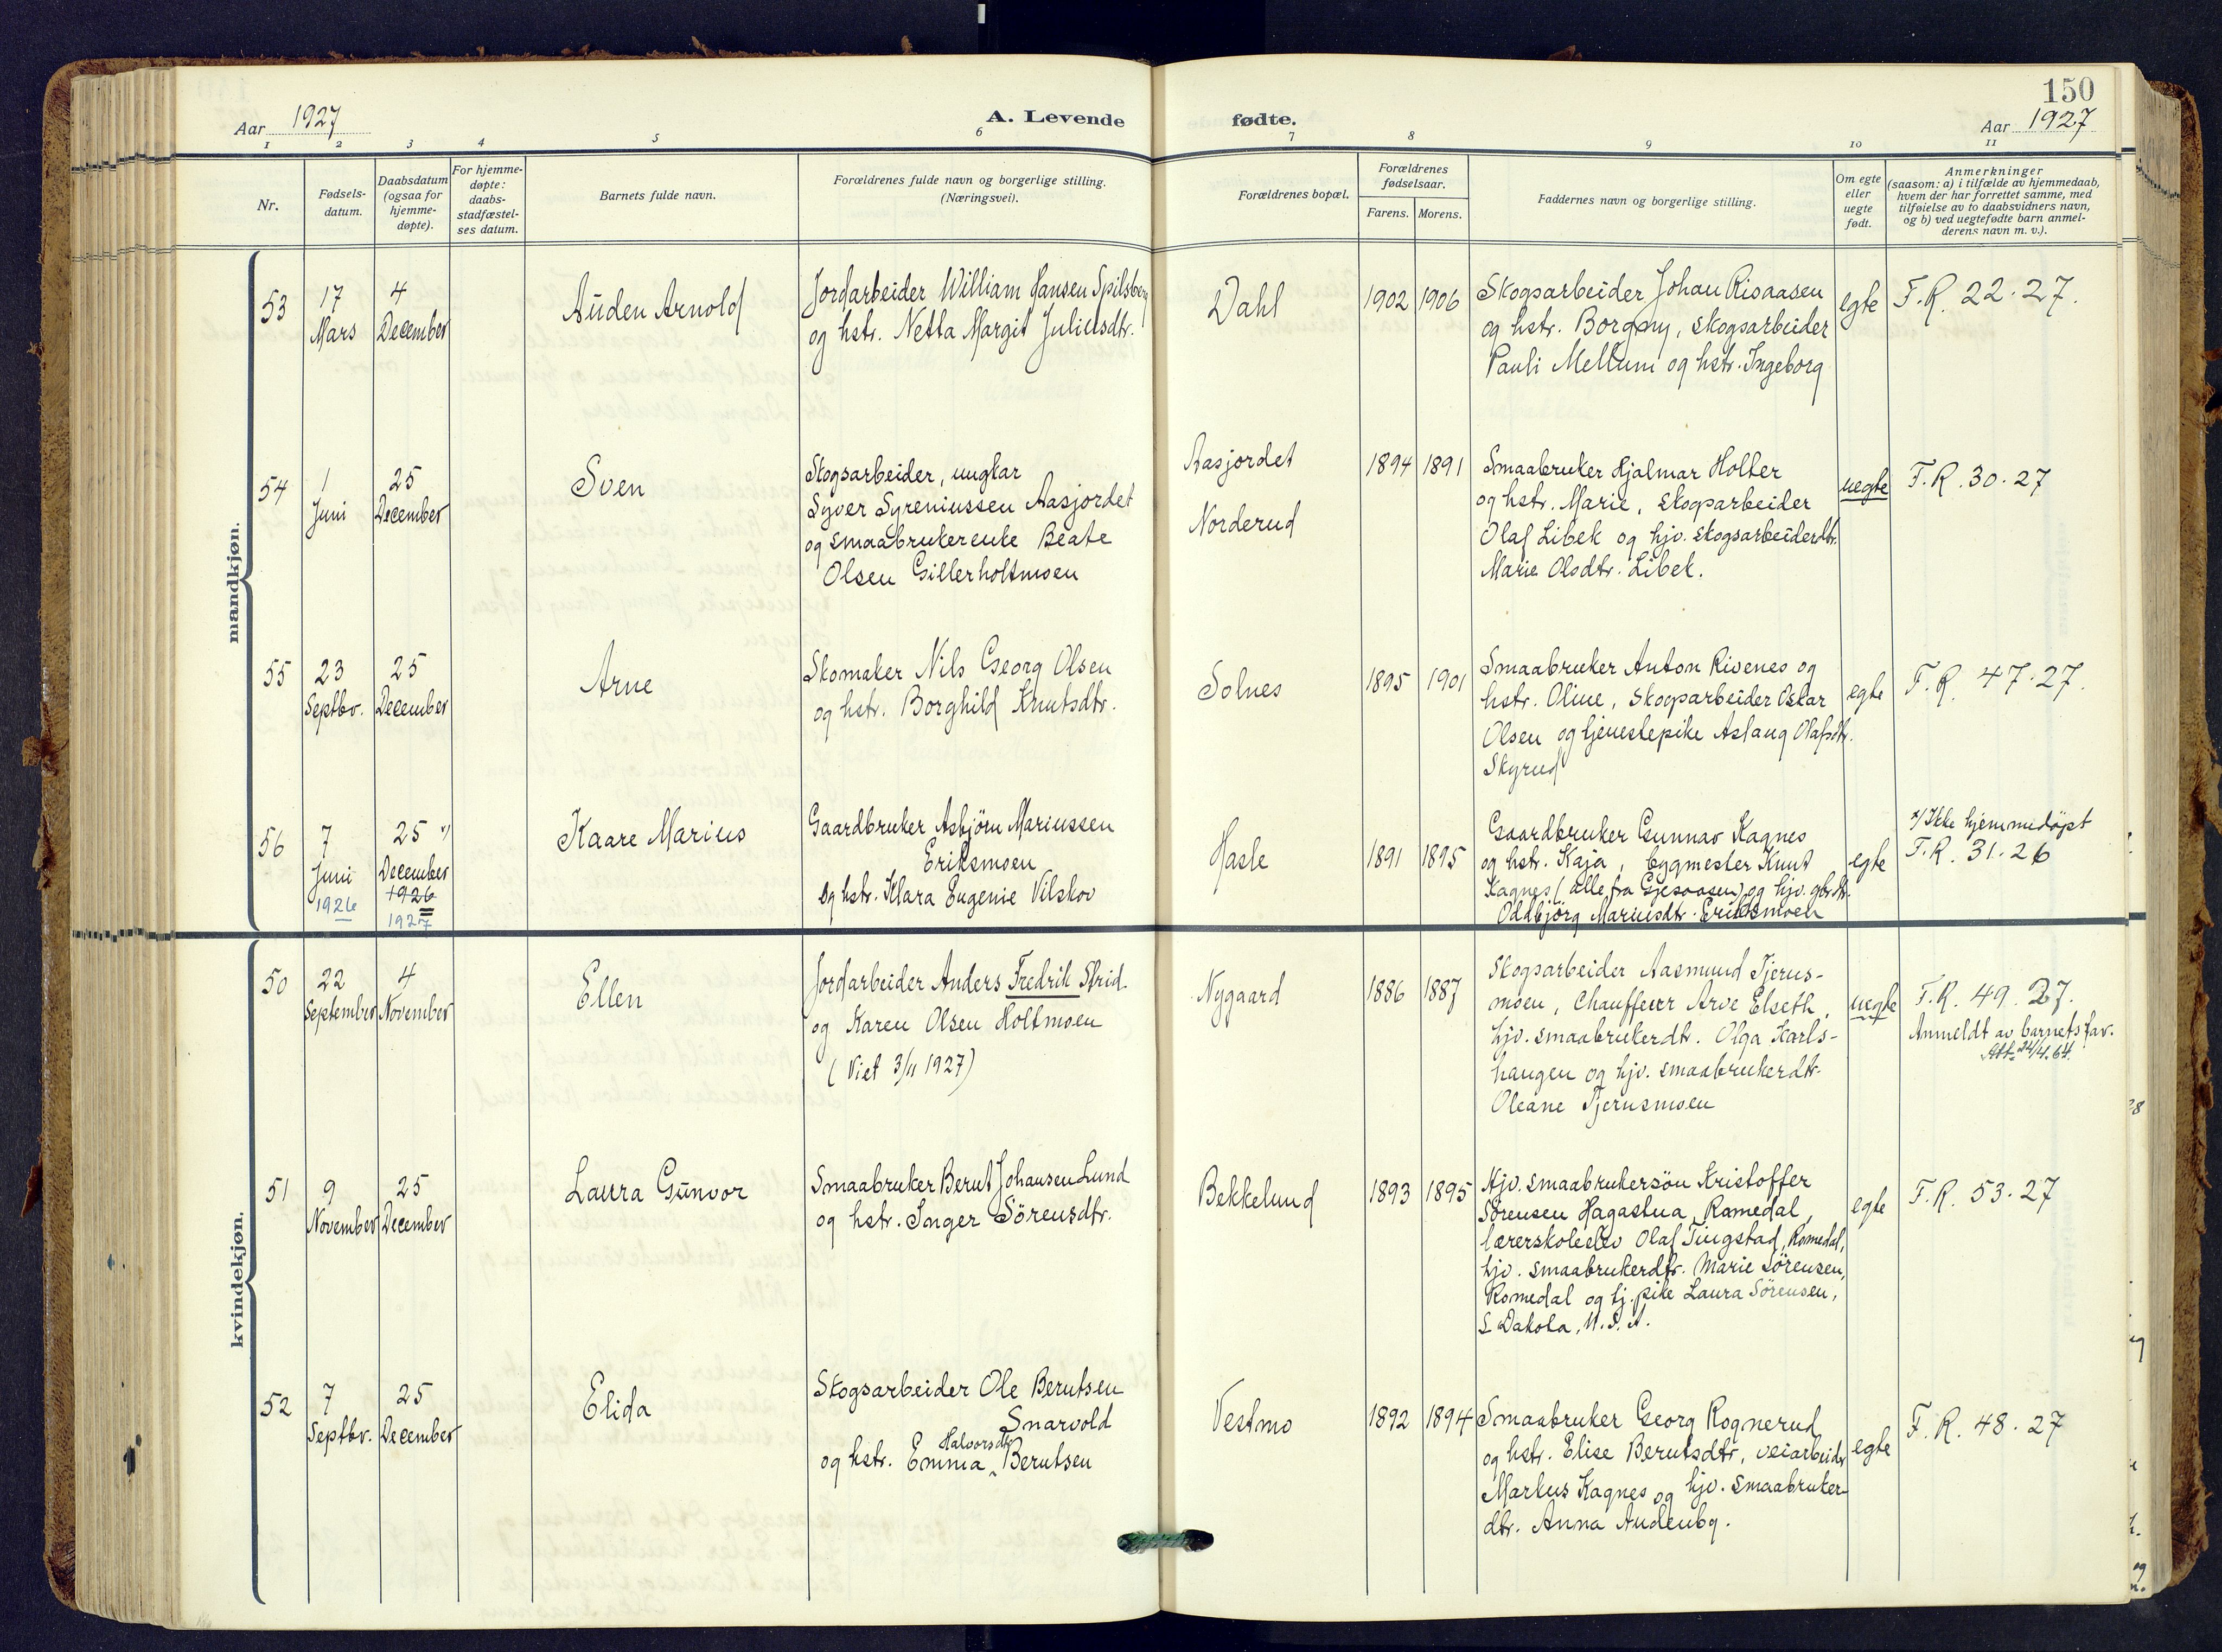 150
Aar 1927
A. Levende fødte.
Aar 1927
1 2 3 4 5 6 7 8 9 10 11
Nr.
Fødsels-
datum.
Daabsdatum
(ogsaa for
hjemme-
døpte).
For hjemme-
døpte:
daabs-
stadfæstel-
ses datum.
Barnets fulde navn.
Forældrenes fulde navn og borgerlige stilling.
(Næringsvei).
Forældrenes bopæl.
Forældrenes
fødselsaar.
Farens. Morens.
Faddernes navn og borgerlige stilling.
Om egte
eller
uegte
født.
Anmerkninger
(saasom: a) i tilfælde av hjemmedaab,
hvem der har forrettet samme, med
tilføielse av to daabsvidners navn,
og b) ved uegtefødte barn anmel-
derens navn m. v.).
mandkjøn.
53
17
Mars
4
December
Auden Arnold
Jordarbeider William Hansen Spilsberg
og hstr. Netta Margit Juliusdtr.
Dahl
1902 1906
Skogsarbeider Johan Risaasen
og hstr. Borgny, skogsarbeider
Pauli Mellum og hstr. Ingeborg
egte
F.R. 22.27.
54
1
Juni
25
December
Sven
Skogsarbeider, ungkar
Syver Syreniussen Aasjordet
og smaabrukerenke Beate
Olsen Gillerholtmoen
Aasjordet
Norderud
1894 1891
Smaabruker Hjalmar Holter
og hstr. Marie, skogsarbeider
Olaf Libek og hjv. skogsarbeiderdtr.
Marie Olsdtr. Libek.
uegte
F.R. 30.27
55
23
Septbr.
25
December
Arne
Skomaker Nils Georg Olsen
og hstr. Borghild Knutsdtr.
Solnes
1895 1901
Smaabruker Anton Rivenes og
hstr. Oline, skogsarbeider Oskar
Olsen og tjenestepike Aslaug Olafsdtr.
Skyrud
egte
F.R. 47.27.
56
7
Juni
1926
25 x)
December
1926
1927
Kaare Marius
Gaardbruker Asbjörn Mariussen
Eriksmoen
og hstr. Klara Eugenie Vilskov
Hasle
1891 1895
Gaardbruker Gunnar Kagnes
og hstr. Kaja, bygmester Knut
Kagnes (alle fra Gjesaasen) og hjv. gbrdtr.
Oddbjörg Mariusdtr. Eriksmoen
egte
x/ Ikke hjemmedöpt
F.R. 31.26
kvindekjøn.
50
22
September
4
November
Ellen
Jordarbeider Anders Fredrik Strid
og Karen Olsen Holtmoen
(Viet 3/11 1927)
Nygaard
1886 1887
Skogsarbeider Aasmund Tjerus-
moen, Chauffeur Arve Elseth,
hjv. smaabrukerdtr. Olga Karls-
haugen og hjv. smaabrukerdtr.
Oleane Tjerusmoen
uegte
F.R. 49.27.
Anmeldt av barnets far.
Att. 24/4.64.
51
9
November
25
December
Laura Gunvor
Smaabruker Bernt Johansen Lund
og hstr. Inger Sörensdtr.
Bekkelund
1893 1895
Hjv. smaabrukersön Kristoffer
Sörensen Hagastua, Romedal,
lærerskoleelev Olaf Tingstad, Romedal,
hjv. smaabrukerdtr. Marie Sörensen,
Romedal og tj. pike Laura Sörensen,
S. Dakota, U.S.A.
egte
F.R. 53.27
52
7
Septbr.
25
December
Elida
Skogsarbeider Ole Berntsen
Snarvold
og hstr. Emma Halvorsdtr. Berntsen
Vestmo
1892 1894
Smaabruker Georg Rognerud
og hstr. Elise Berntsdtr, veiarbeider
Markus Kagnes og hjv. smaabruker-
dtr. Anna Audenbg.
egte
F.R. 48.27